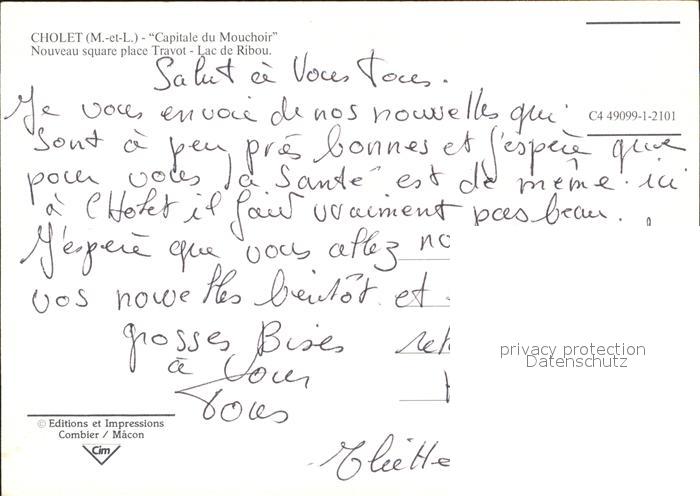 CHOLET (M.-et-L.) - “Capitale du Mouchoir”
Nouveau square place Travot - Lac de Ribou.
Salut à Vous Tous.
Je vous envoie de nos nouvelles qui
C4 49099-1-2101
sont à peu près bonnes et j'espère que
pour vous la Santé est de même. ici
à l'Hotel il fait vraiment pas beau.
J'espère que vous allez no
vos nouvelles bientôt et
grosses Bises
à Vous
Tous
privacy protection
Datenschutz
© Editions et Impressions
Combier / Mâcon
Cim